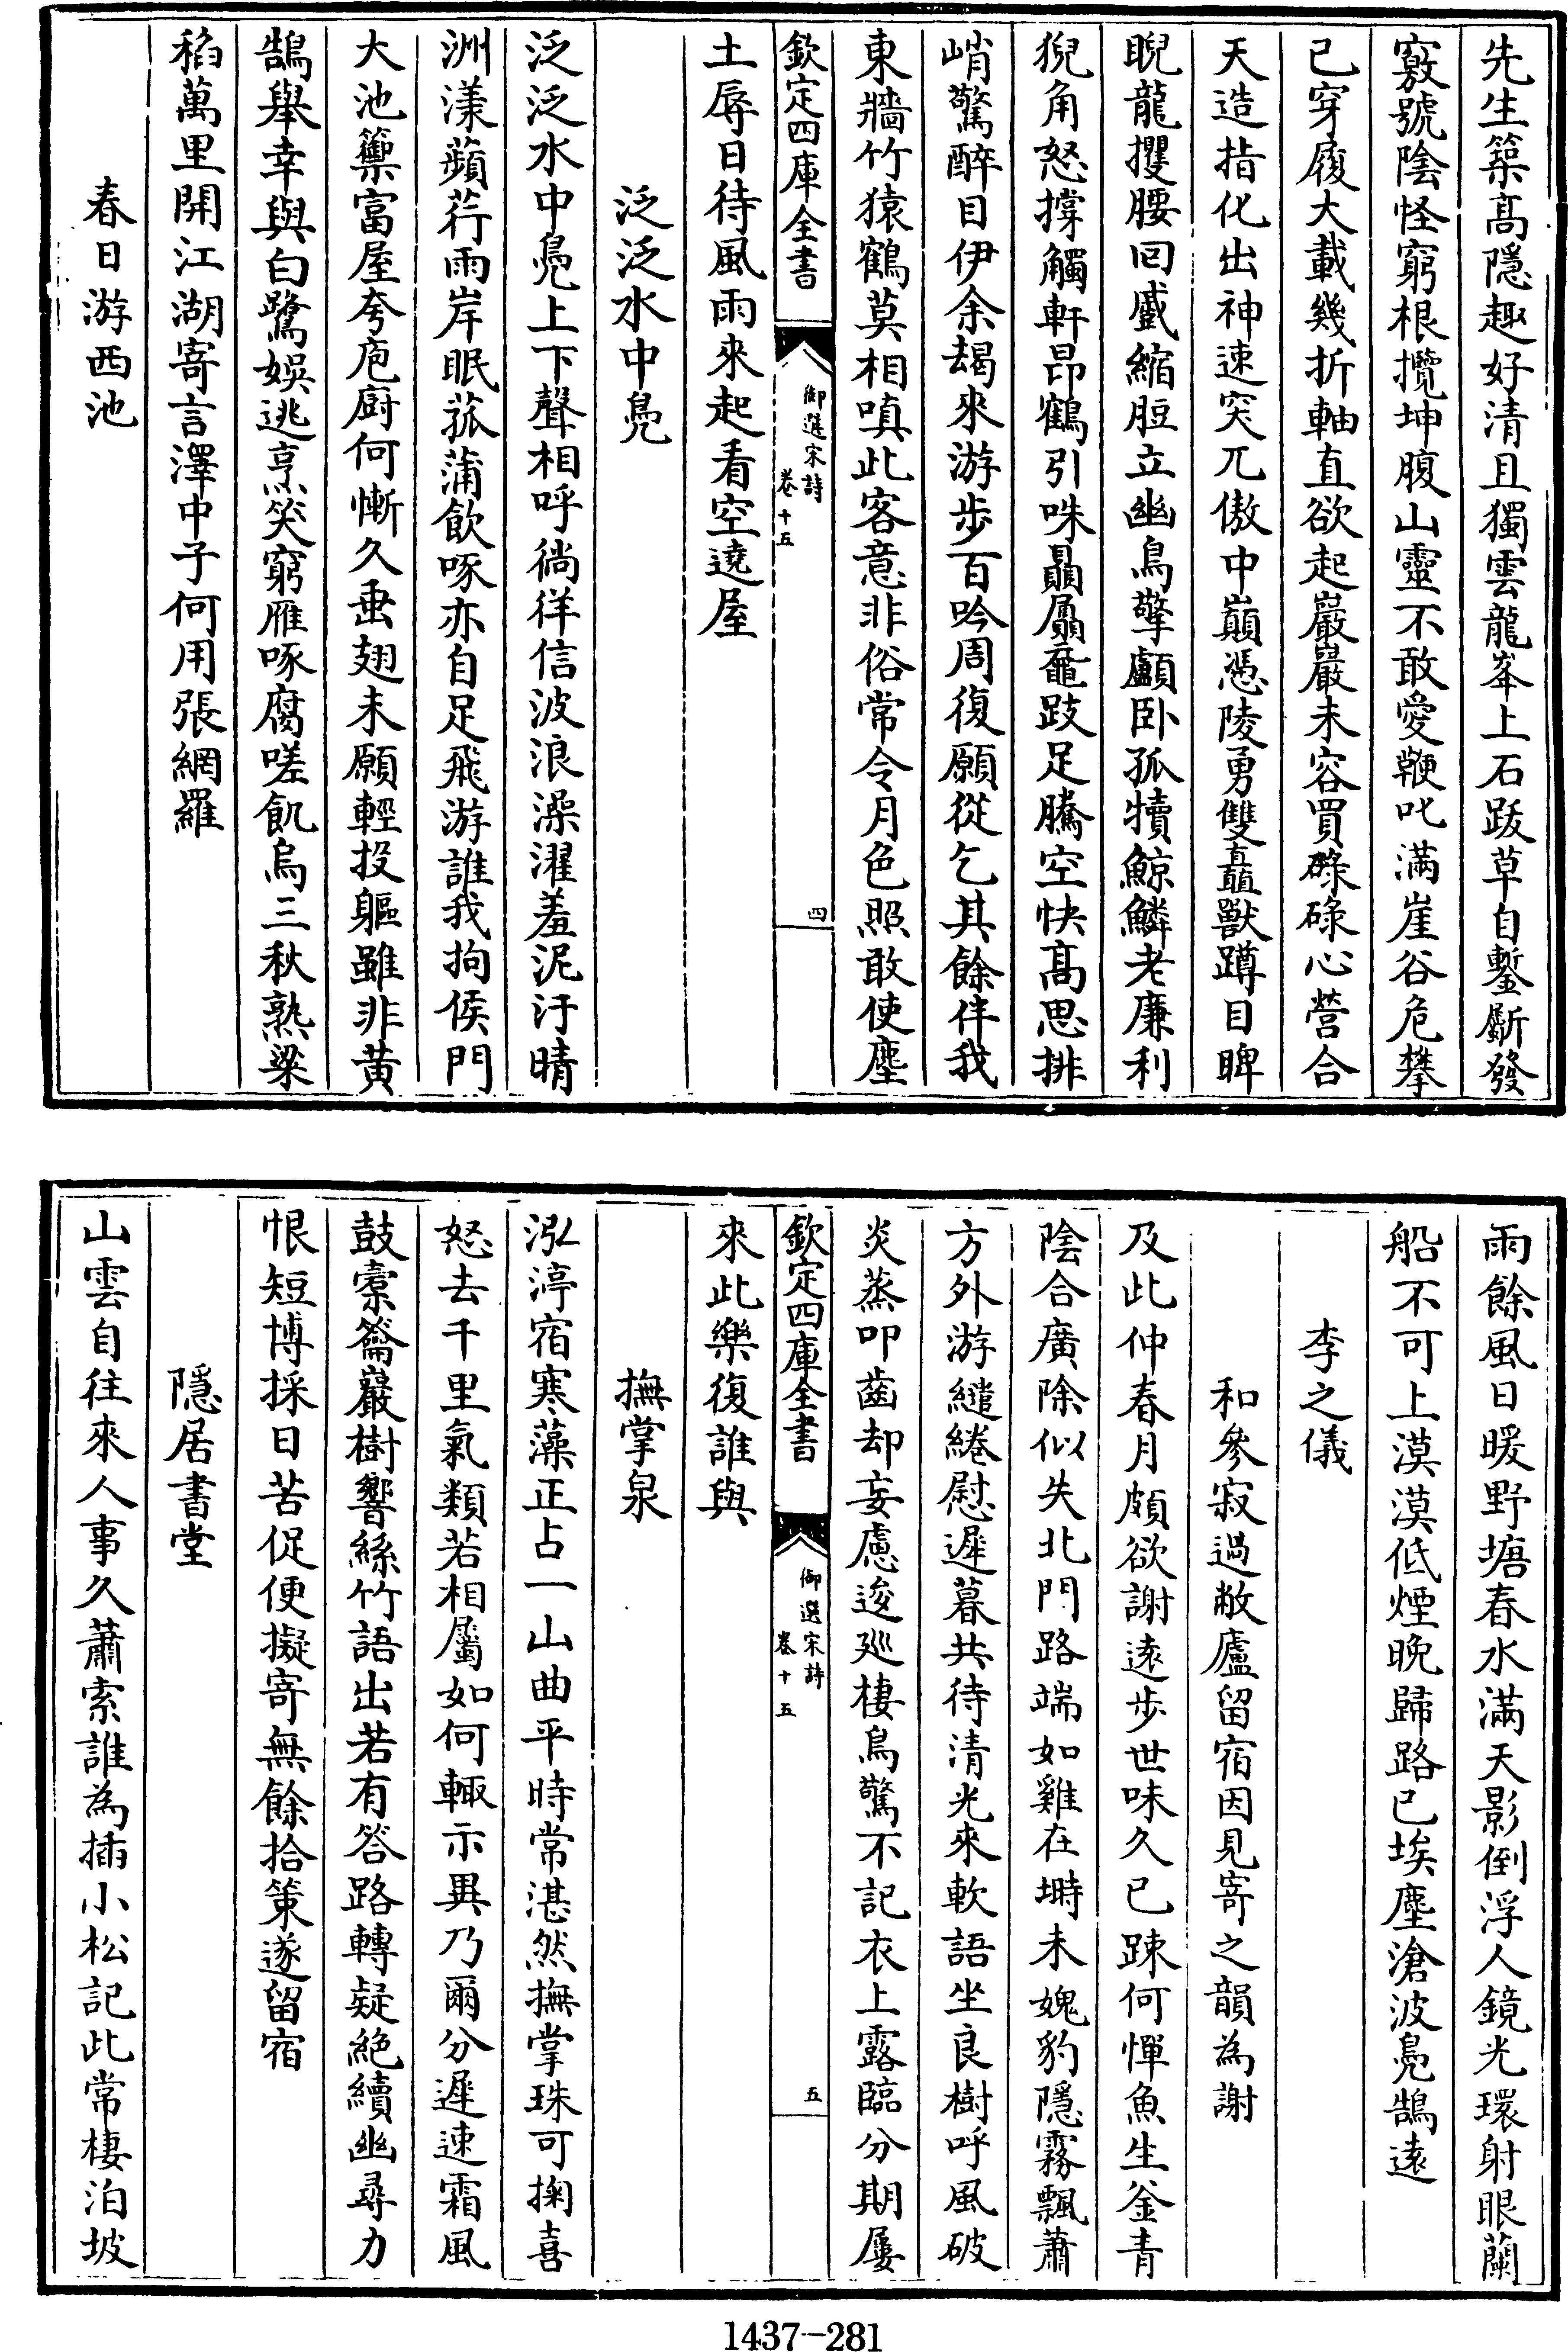 先生築髙隱趣好清且獨雲龍峯上石跋草自鏨斸發
竅號陰怪窮根攬坤腹山靈不敢愛鞭叱滿崖谷危攀
已穿履大載幾折軸直欲起巖巖未容買碌碌心營合
天造指化出神速突兀傲中巔憑陵勇雙矗獸蹲目睥
睨龍攫腰回蹙縮脰立幽鳥擎顱卧孤犢鯨鱗老廉利
猊角怒撐觸軒昂鶴引咮贔屭鼇跂足騰空快髙思排
峭驚醉目伊余朅來游步百吟周復願從乞其餘伴我
東牆竹猿鶴莫相嗔此客意非俗常令月色照敢使塵
欽定四庫全書
御選宋詩
卷十五
四
土辱日待風雨來起看空遶屋
泛泛水中鳧
泛泛水中鳧上下聲相呼徜徉信波浪澡濯羞泥汙晴
洲漾蘋荇雨岸眠菰蒲飲啄亦自足飛游誰我拘侯門
大池籞富屋夸庖廚何慚久垂翅未願輕投軀雖非黄
鵠舉幸與白鷺娛逃烹笑窮雁啄腐嗟飢烏三秋熟粱
稻萬里開江湖寄言澤中子何用張網羅
春日游西池
雨餘風日暖野塘春水滿天影倒浮人鏡光環射眼蘭
船不可上漠漠低煙晚歸路已埃塵滄波鳧鵠遠
李之儀
和參寂過敝廬留宿因見寄之韻為謝
及此仲春月頗欲謝遠步世味久已踈何憚魚生釜青
陰合廣除似失北門路端如雞在塒未媿豹隱霧飄蕭
方外游繾綣慰遲暮共待清光來軟語坐良樹呼風破
炎蒸叩齒却妄慮逡廵棲鳥驚不記衣上露臨分期屢
欽定四庫全書
御選宋詩
卷十五
五
來此樂復誰與
撫掌泉
泓渟宿寒藻正占一山曲平時常湛然撫掌珠可掬喜
怒去千里氣類若相屬如何輙示異乃爾分遲速霜風
鼓槖籥巖樹響絲竹語出若有答路轉疑絶續幽尋力
恨短博採日苦促便擬寄無餘拾策遂留宿
隱居書堂
山雲自往來人事久蕭索誰為插小松記此常棲泊坡
1437-281